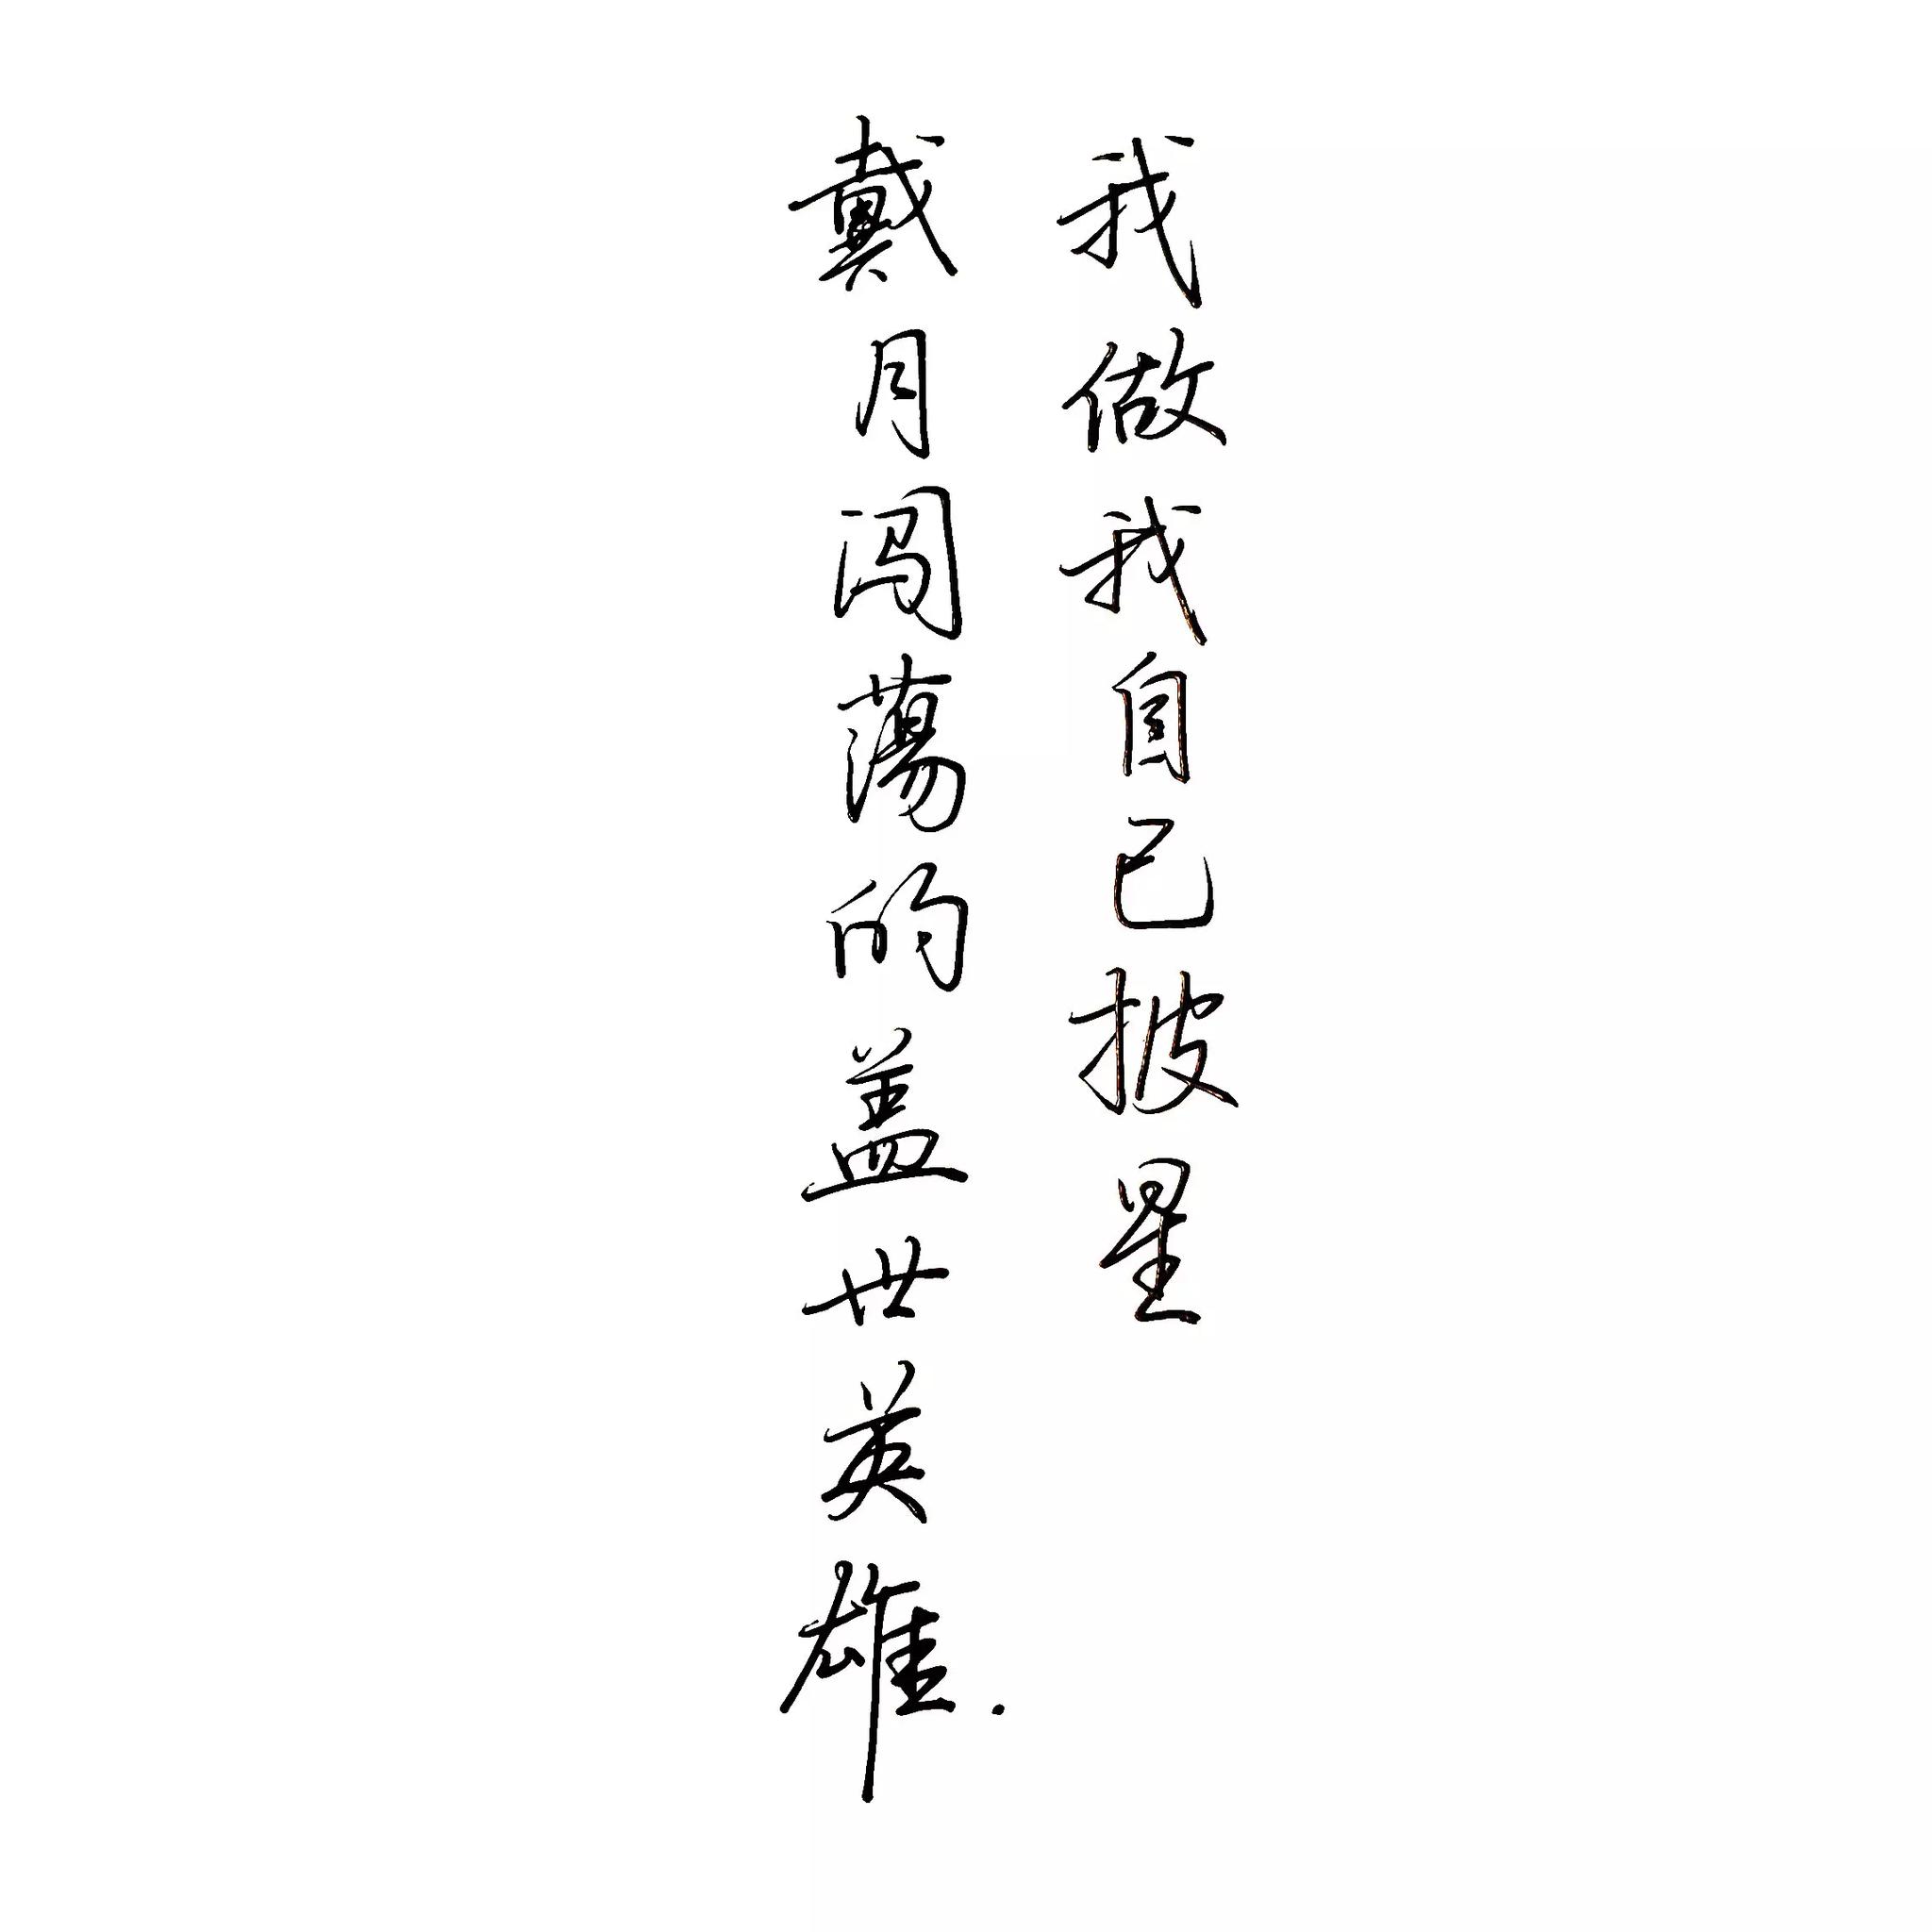 我做我自己披星
戴月闯荡的盖世英雄.